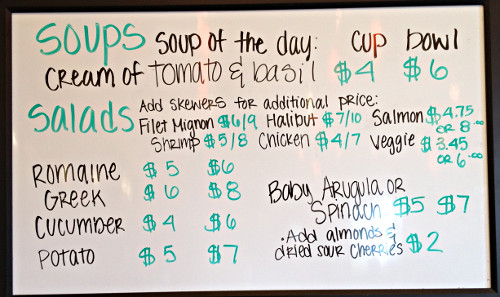 Soups Soup of the day: cup bowl
cream of tomato & basil $4 $6
Salads Add skewers for additional price:
Filet Mignon $6/9 Halibut $7/10 Salmon $4.75 or 8.00
Shrimp $5/8 Chicken $4/7 Veggie $3.45 or 6.00
Romaine $5 $6
Greek $6 $8
Cucumber $4 $6
Potato $5 $7
Baby Arugula or
Spinach $5 $7
. Add almonds &
dried sour cherries $2